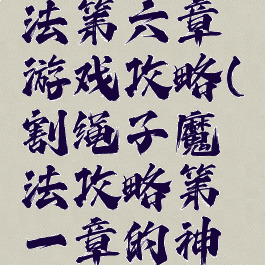 法第六章
游戏攻略(
割绳子魔
法攻略第
一章的神